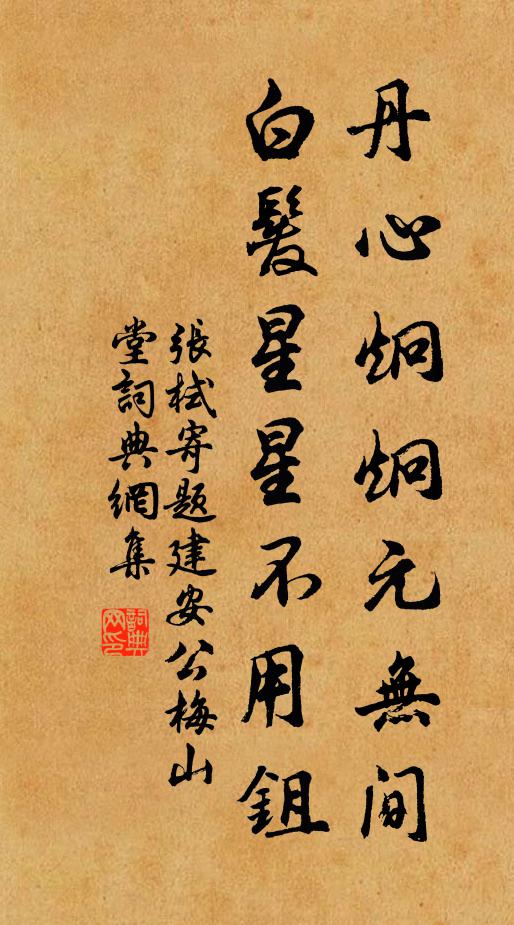 丹心炯炯元無間
白髮星星不用鉏
張栻寄題建安公梅山
堂詞典網集
詞典網印